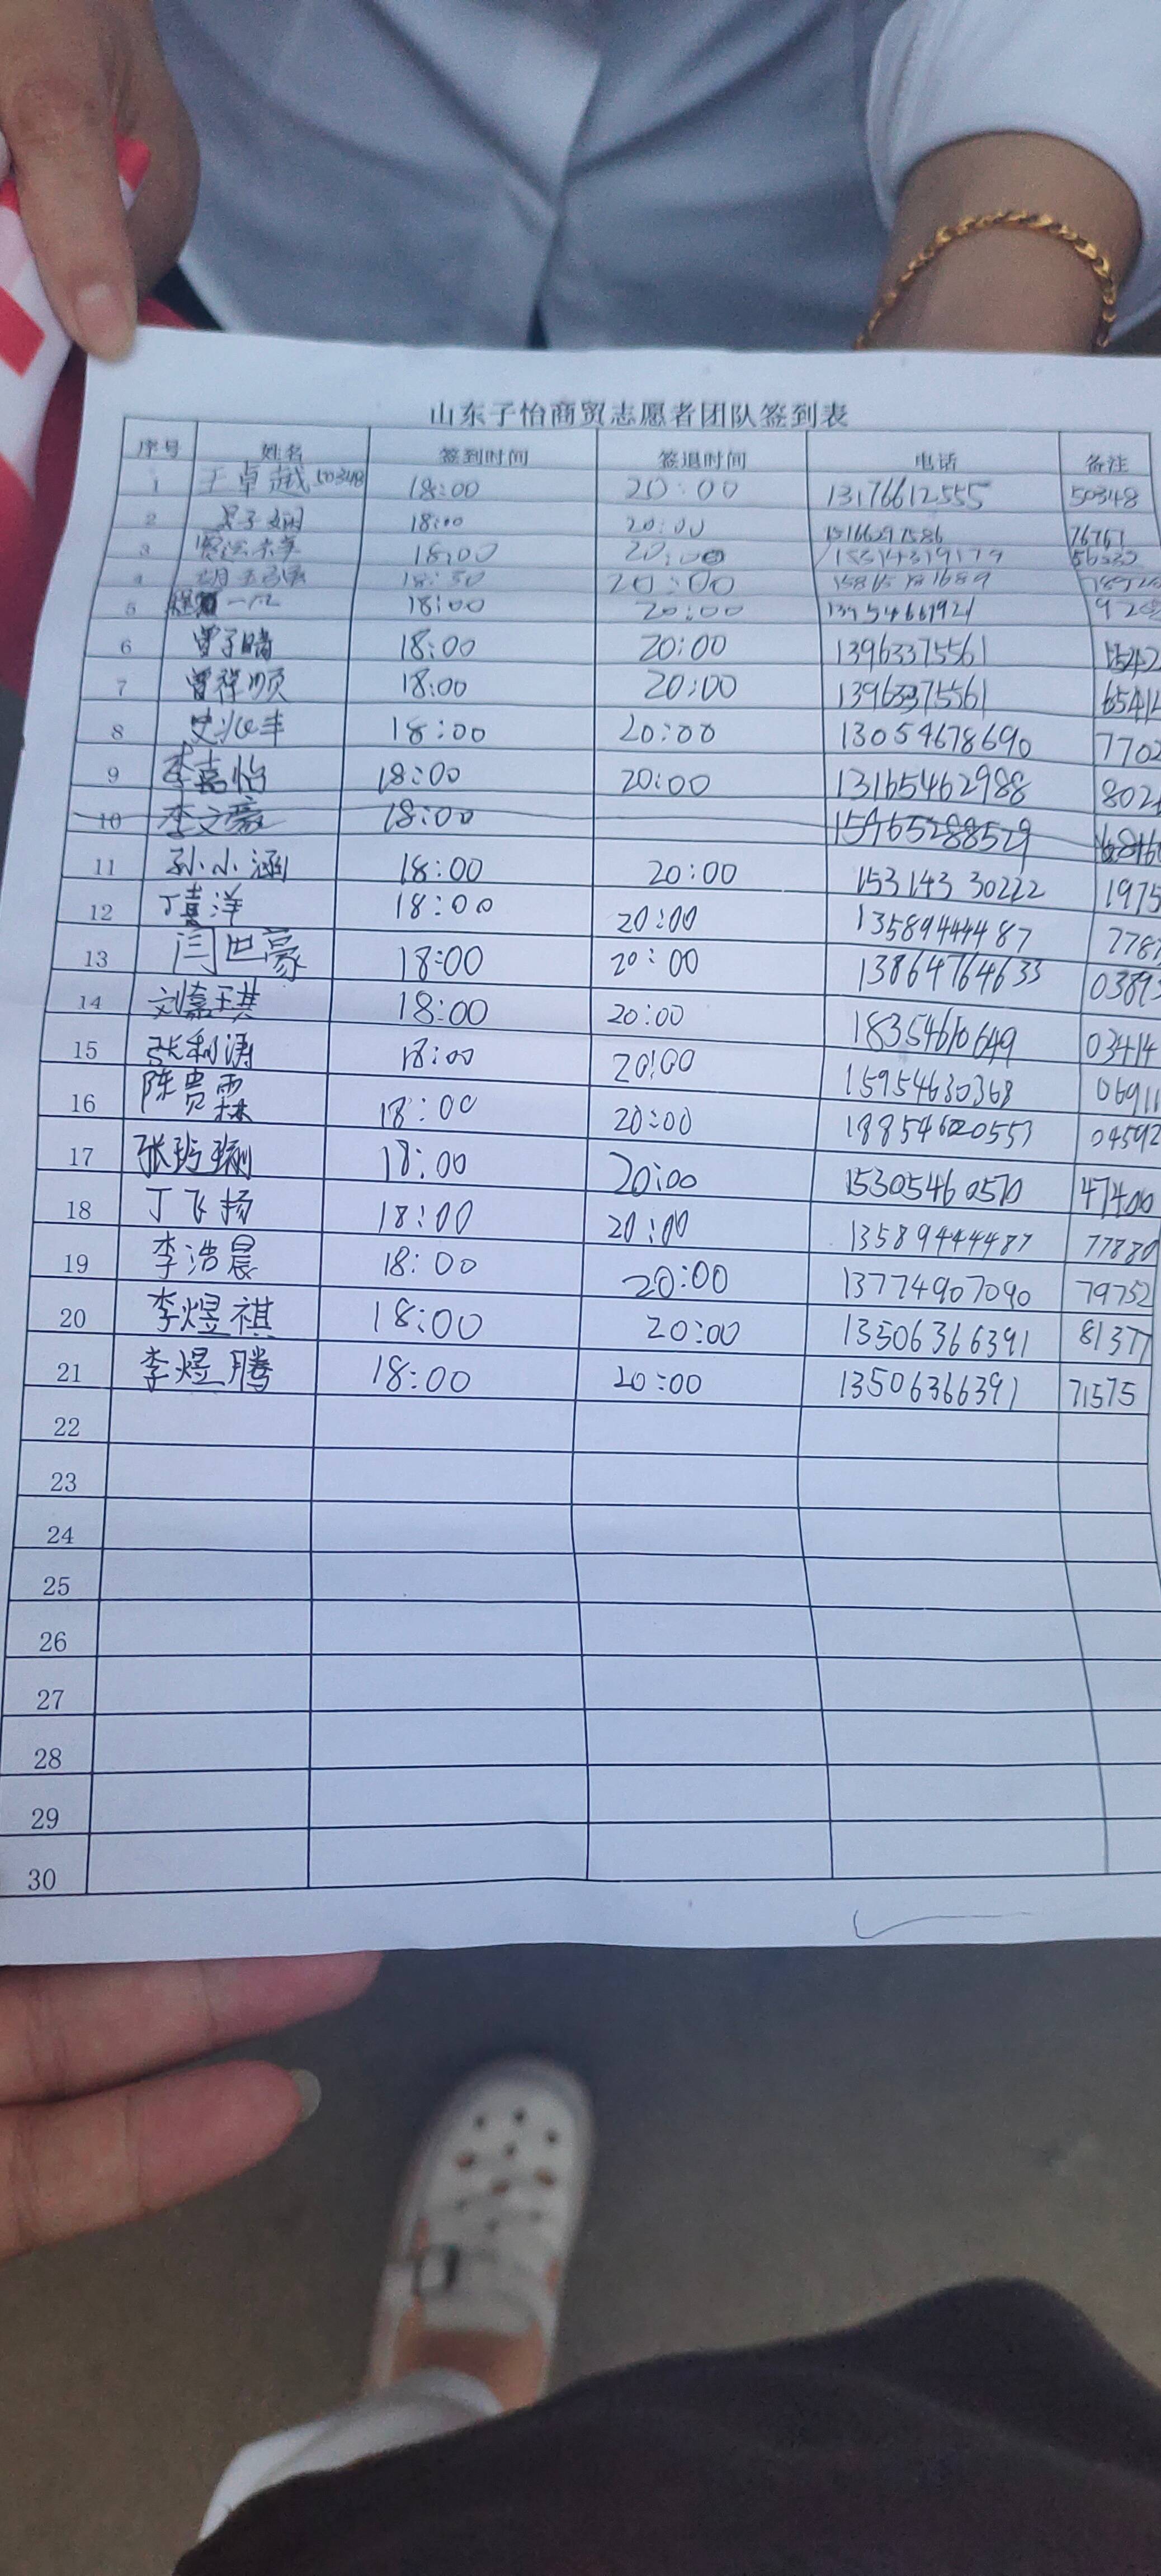 山东子怡商贸志愿者团队签到表
序号 姓名 签到时间 签退时间 电话 备注
1 王卓越 50348 18:00 20:00 13176612555 50348
2 18:00 20:00 15166297586 76761
3 18:00 20:00 15314319179
4 20:00
5 一凡 18:00 20:00 13954661921
6 曾子晴 18:00 20:00 13963375561
7 曾祥顺 18:00 20:00 13963375561
8 史兆丰 18:00 20:00 13054678690 7702
9 李嘉怡 18:00 20:00 13165462988 802
10 李文豪 18:00 15965288529
11 孙小涵 18:00 20:00 15314330222 1975
12 丁喜洋 18:00 20:00 13589444487 778
13 闫世豪 18:00 20:00 13864764633 0389
14 刘嘉琪 18:00 20:00 18354610649 03414
15 张利涛 18:00 20:00 15954630368 06911
16 陈贵霖 18:00 20:00 18854620553 04592
17 张 18:00 20:00 15305460570 47400
18 丁飞扬 18:00 20:00 13589444487 77880
19 李浩晨 18:00 20:00 13774907090 79752
20 李煜祺 18:00 20:00 13506366391 81377
21 李煜腾 18:00 20:00 13506366391 71575
22
23
24
25
26
27
28
29
30